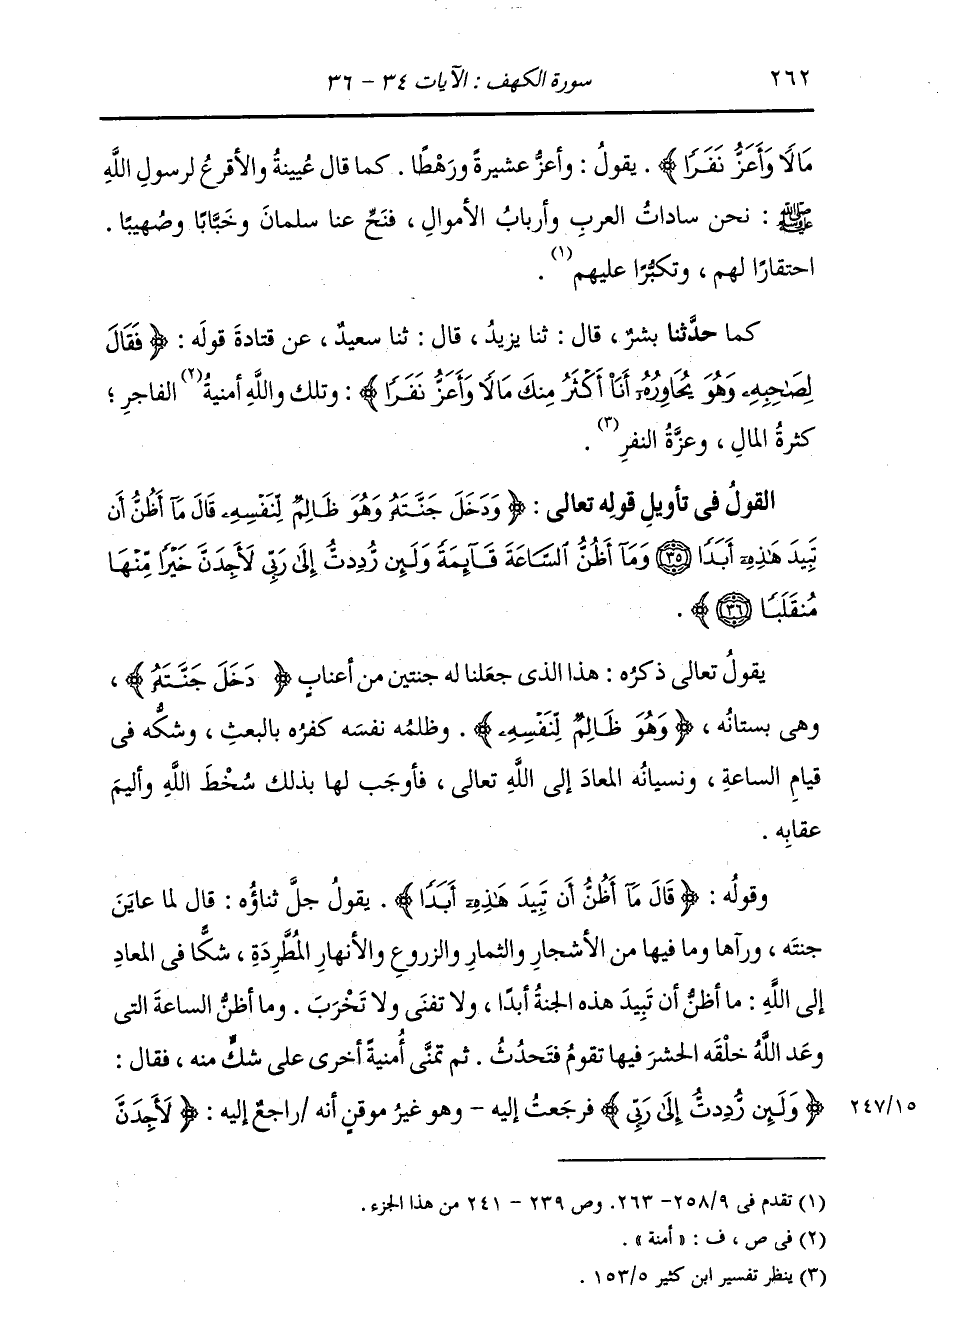 ٢٦٢ سورة الكهف : الآيات ٣٤ - ٣٦
مَالًا وَأَعَزُّ نَفَرًا ﴾ . يقولُ : وأعزُّ عشيرةً ورَهْطًا . كما قال عُيينةُ والأقرعُ لرسولِ اللَّهِ
ﷺ : نحن ساداتُ العربِ وأربابُ الأموالِ ، فنَحِّ عنا سلمانَ وخَبَّابًا وصُهيبًا .
احتقارًا لهم ، وتكبُّرًا عليهم(١) .
كما حدَّثنا بشرٌ ، قال : ثنا يزيدُ ، قال : ثنا سعيدٌ ، عن قتادةَ قولَه : ﴿ فَقَالَ
لِصَٰحِبِهِۦ وَهُوَ يُحَاوِرُهُۥٓ أَنَا۠ أَكْثَرُ مِنكَ مَالًا وَأَعَزُّ نَفَرًا ﴾ : وتلك واللَّهِ أمنيةُ(٢) الفاجرِ ؛
كثرةُ المالِ ، وعزَّةُ النفرِ(٣) .
القولُ فى تأويلِ قولِه تعالى : ﴿ وَدَخَلَ جَنَّتَهُۥ وَهُوَ ظَالِمٌ لِّنَفْسِهِۦ قَالَ مَآ أَظُنُّ أَن
تَبِيدَ هَٰذِهِۦٓ أَبَدًا ﴿٣٥﴾ وَمَآ أَظُنُّ ٱلسَّاعَةَ قَآئِمَةً وَلَئِن رُّدِدتُّ إِلَىٰ رَبِّى لَأَجِدَنَّ خَيْرًا مِّنْهَا
مُنقَلَبًا ﴿٣٦﴾ ﴾ .
يقولُ تعالى ذكرُه : هذا الذى جعَلنا له جنتين من أعنابٍ ﴿ دَخَلَ جَنَّتَهُۥ ﴾ ،
وهى بستانُه ، ﴿ وَهُوَ ظَالِمٌ لِّنَفْسِهِۦ ﴾ . وظلمُه نفسَه كفرُه بالبعثِ ، وشكُّه فى
قيامِ الساعةِ ، ونسيانُه المعادَ إلى اللَّهِ تعالى ، فأوجَب لها بذلك سُخْطَ اللَّهِ وأليمَ
عقابِه .
وقولُه : ﴿ قَالَ مَآ أَظُنُّ أَن تَبِيدَ هَٰذِهِۦٓ أَبَدًا ﴾ . يقولُ جلَّ ثناؤُه : قال لما عايَنَ
جنتَه ، ورآها وما فيها من الأشجارِ والثمارِ والزروعِ والأنهارِ المُطَّرِدَةِ ، شكًّا فى المعادِ
إلى اللَّهِ : ما أظنُّ أن تَبِيدَ هذه الجنةُ أبدًا ، ولا تفنَى ولا تَخْرَبَ . وما أظنُّ الساعةَ التى
وعَد اللَّهُ خلْقَه الحشرَ فيها تقومُ فتَحدُثُ . ثم تمنَّى أُمنيةً أخرى على شكٍّ منه ، فقال :
﴿ وَلَئِن رُّدِدتُّ إِلَىٰ رَبِّى ﴾ فرجَعتُ إليه - وهو غيرُ موقنٍ أنه /راجعٌ إليه : ﴿ لَأَجِدَنَّ
٢٤٧/١٥
(١) تقدم فى ٢٥٨/٩- ٢٦٣. وص ٢٣٩ - ٢٤١ من هذا الجزء .
(٢) فى ص ، ف : « أمنة » .
(٣) ينظر تفسير ابن كثير ١٥٣/٥ .